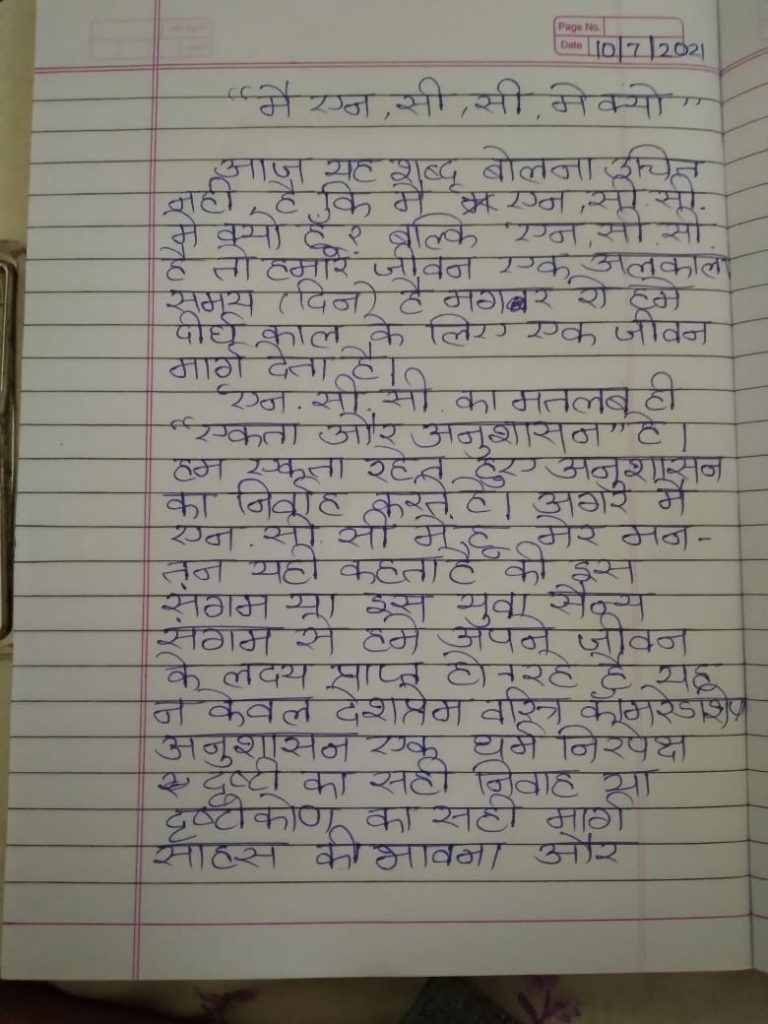 Page No.
Date 10/7/2021
“मै एन, सी, सी, मे क्यो”
आज यह शब्द बोलना उचित
नही, है कि मै एन, सी. सी.
मे क्यो हूँ? बल्कि एन, सी. सी.
है तो हमारे जीवन एक अलकाल
समय (दिन) है मगर ये हमे
दीर्घ काल के लिए एक जीवन
मार्ग देता है।
एन. सी. सी. का मतलब ही
“एकता और अनुशासन” है।
हम एकता रहेत हुए अनुशासन
का निर्वाह करते है। अगर मै
एन. सी. सी मे हू मेर मन-
तन यही कहता है की इस
संगम या इस युवा सैन्य
संगम से हमे अपने जीवन
के लदय प्राप्त हो रहे है यह
न केवल देशप्रेम चरित्र कामरेडशिप
अनुशासन एक धर्म निरपेक्ष
दृष्टी का सही निवाह या
दृष्टीकोण का सही मार्ग
साहस की भावना और